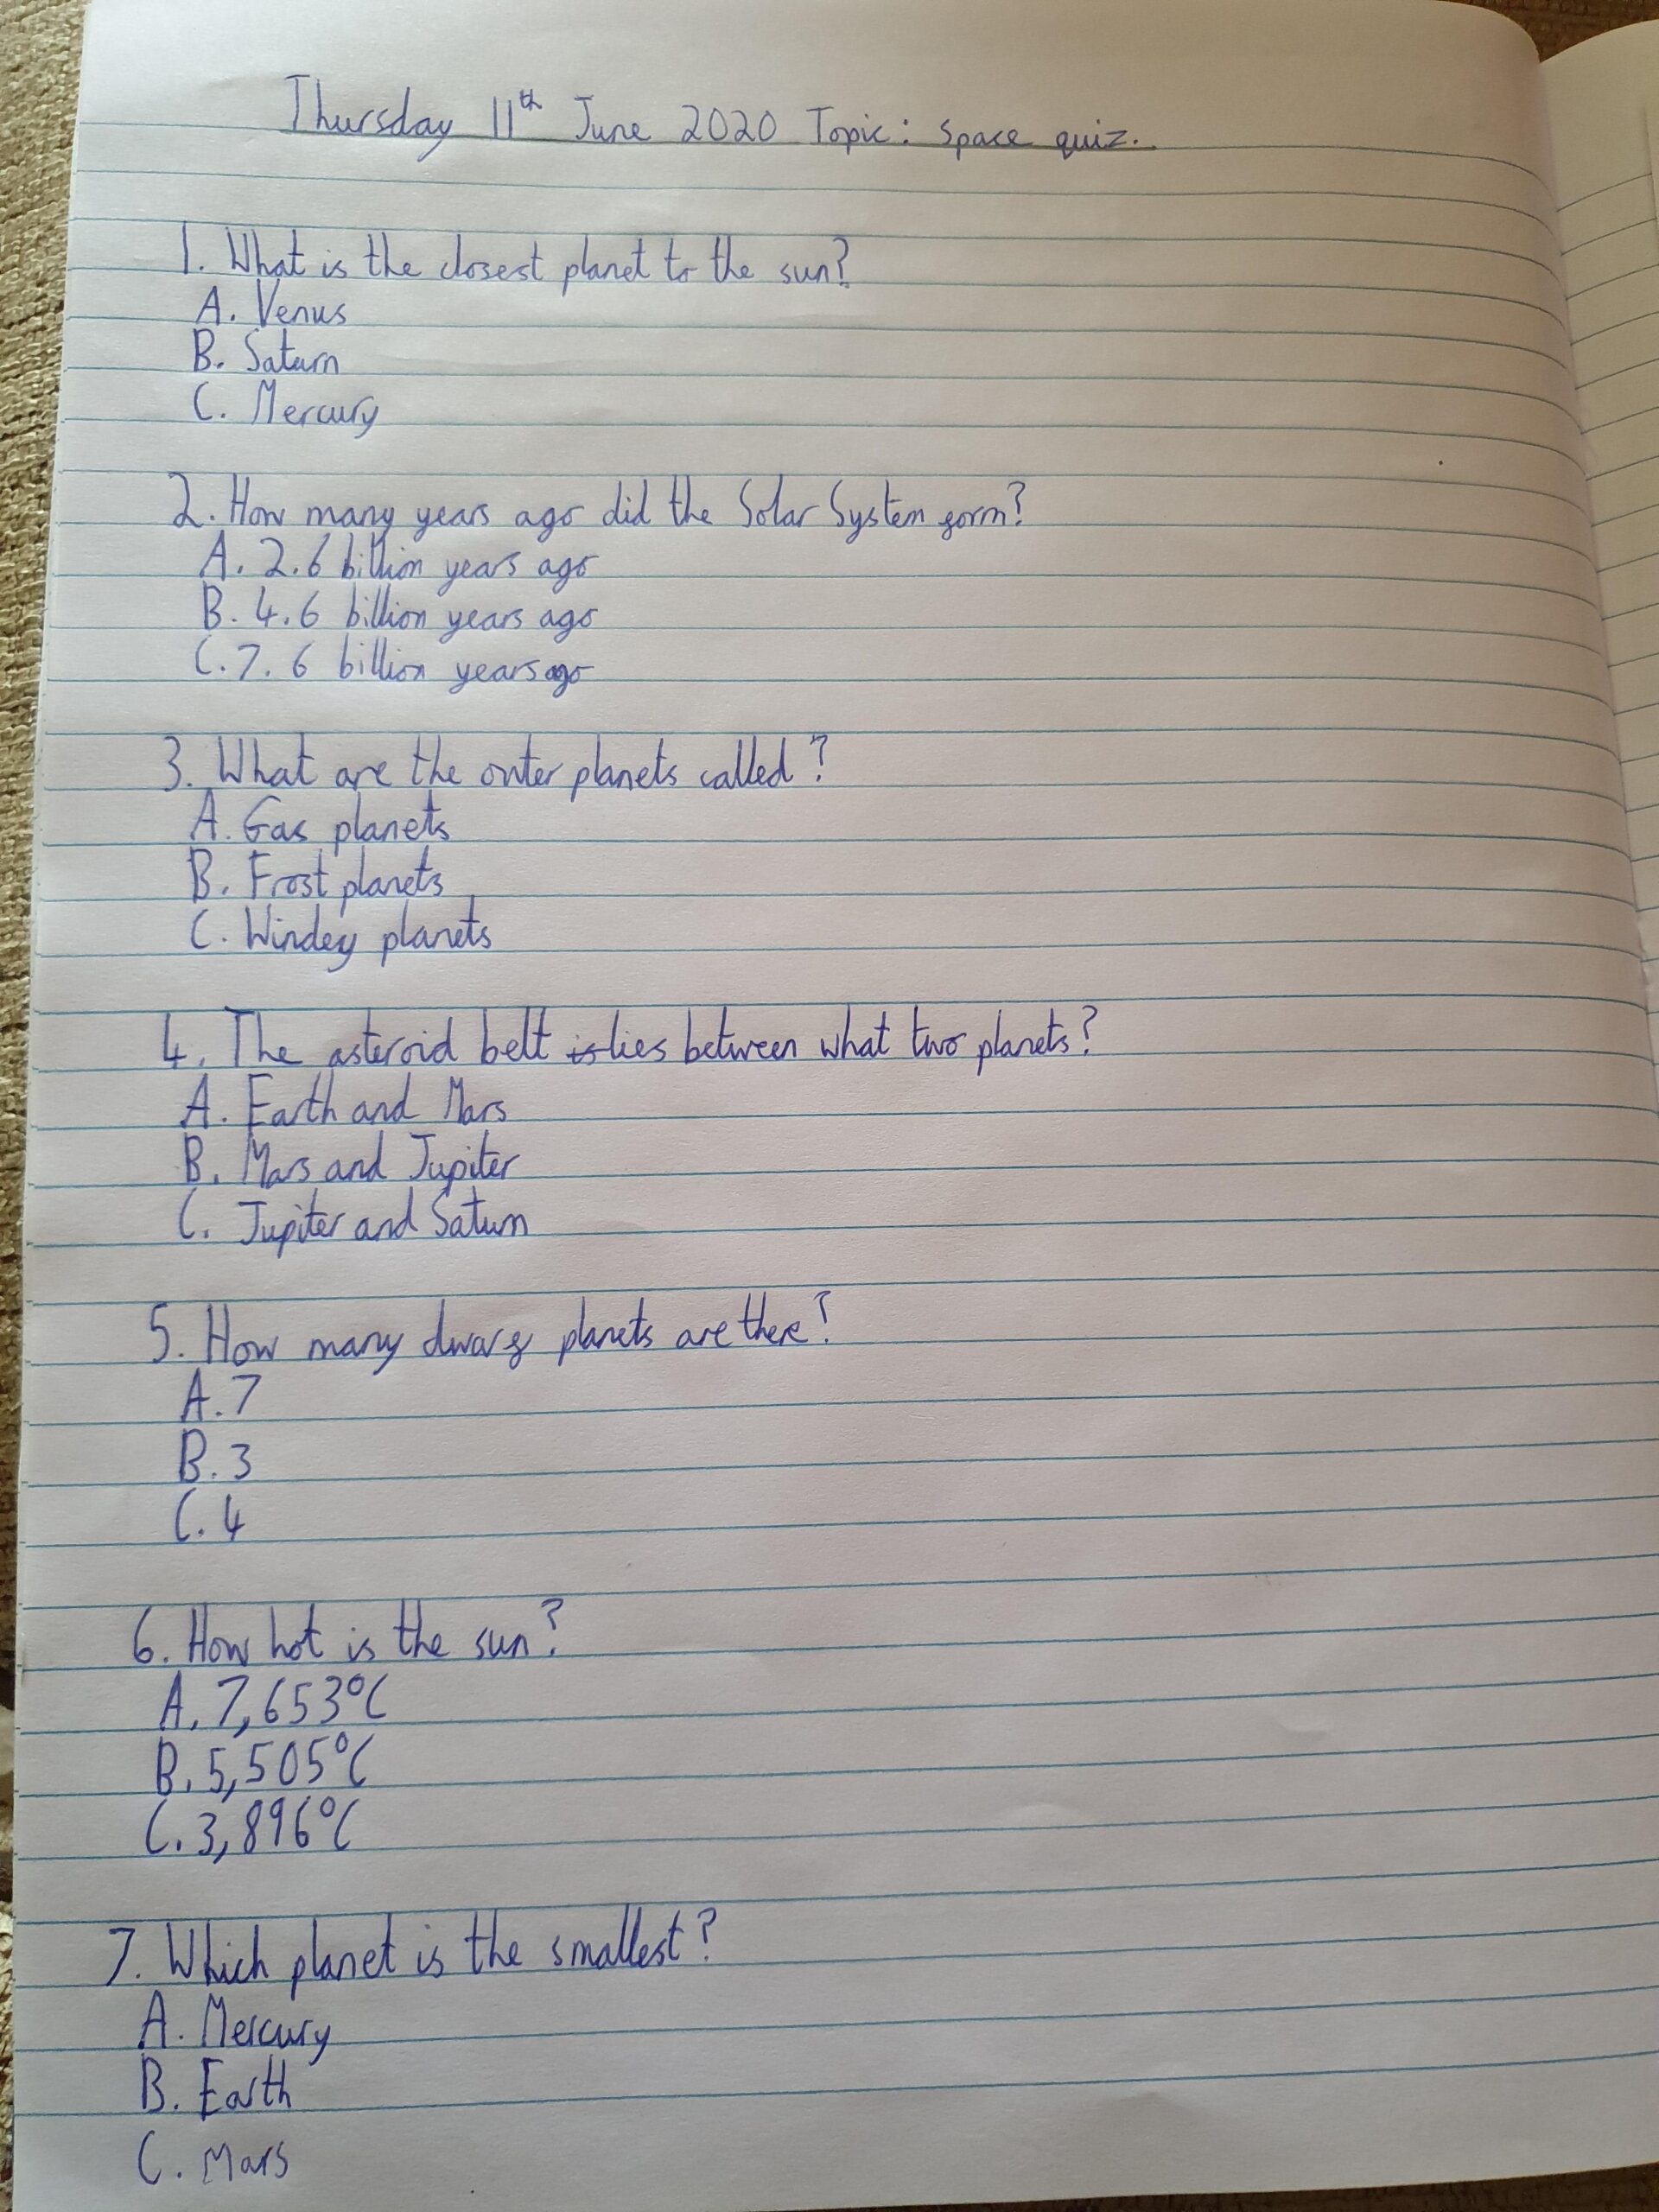 Thursday 11th June 2020 Topic: Space quiz.
1. What is the closest planet to the sun?
A. Venus
B. Saturn
C. Mercury
2. How many years ago did the Solar System form?
A. 2.6 billion years ago
B. 4.6 billion years ago
C. 7.6 billion years ago
3. What are the outer planets called?
A. Gas planets
B. Frost planets
C. Windey planets
4. The asteroid belt is lies between what two planets?
A. Earth and Mars
B. Mars and Jupiter
C. Jupiter and Saturn
5. How many dwarf planets are there?
A. 7
B. 3
C. 4
6. How hot is the sun?
A. 7,653°C
B. 5,505°C
C. 3,896°C
7. Which planet is the smallest?
A. Mercury
B. Earth
C. Mars